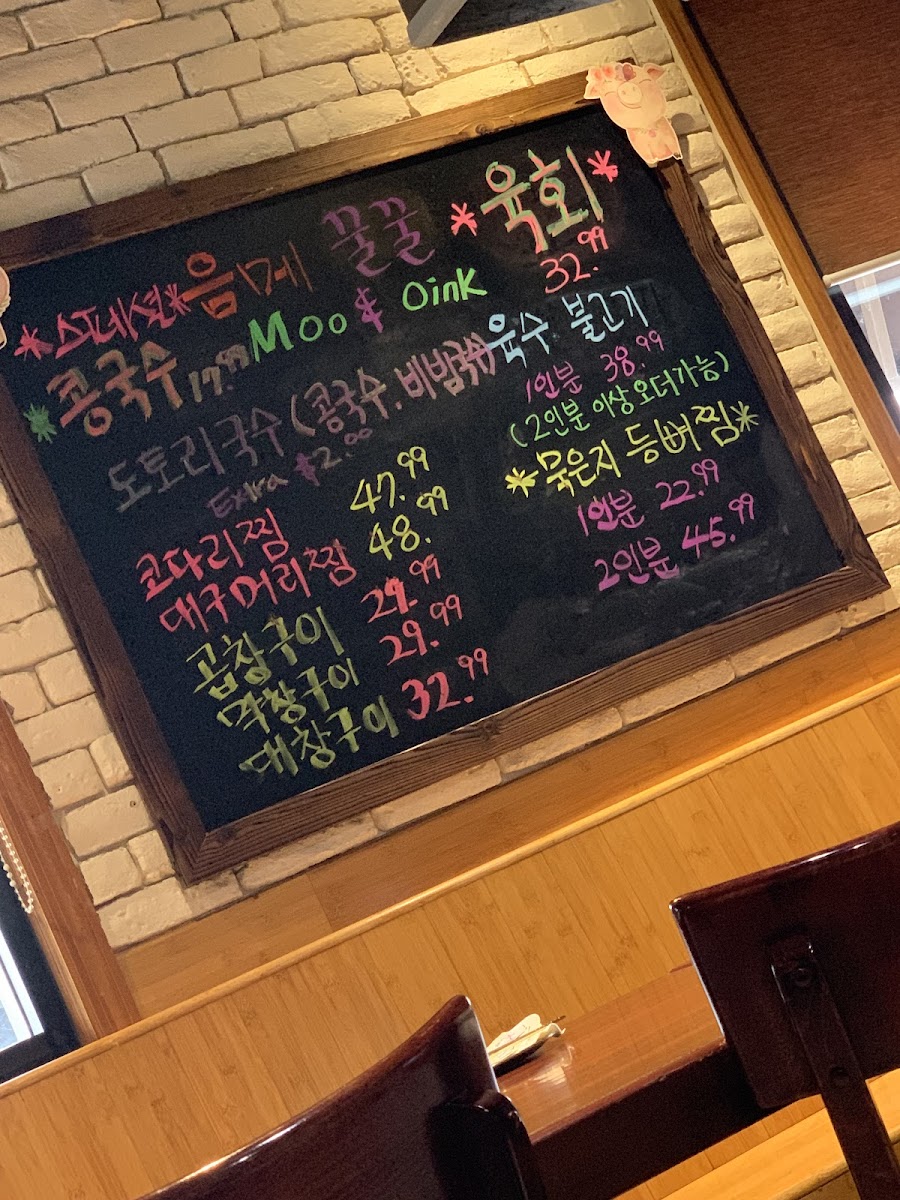 *스페셜* 음메 꿀꿀
Moo & Oink
*콩국수 17.99
도토리국수 (콩국수, 비빔국수)
Extra $2.00
코다리찜 47.99
대구머리찜 48.99
곱창구이 29.99
막창구이 29.99
대창구이 32.99
*육회*
32.99
육수 불고기
1인분 38.99
(2인분 이상 오더가능)
*묵은지 등뼈찜*
1인분 22.99
2인분 45.99